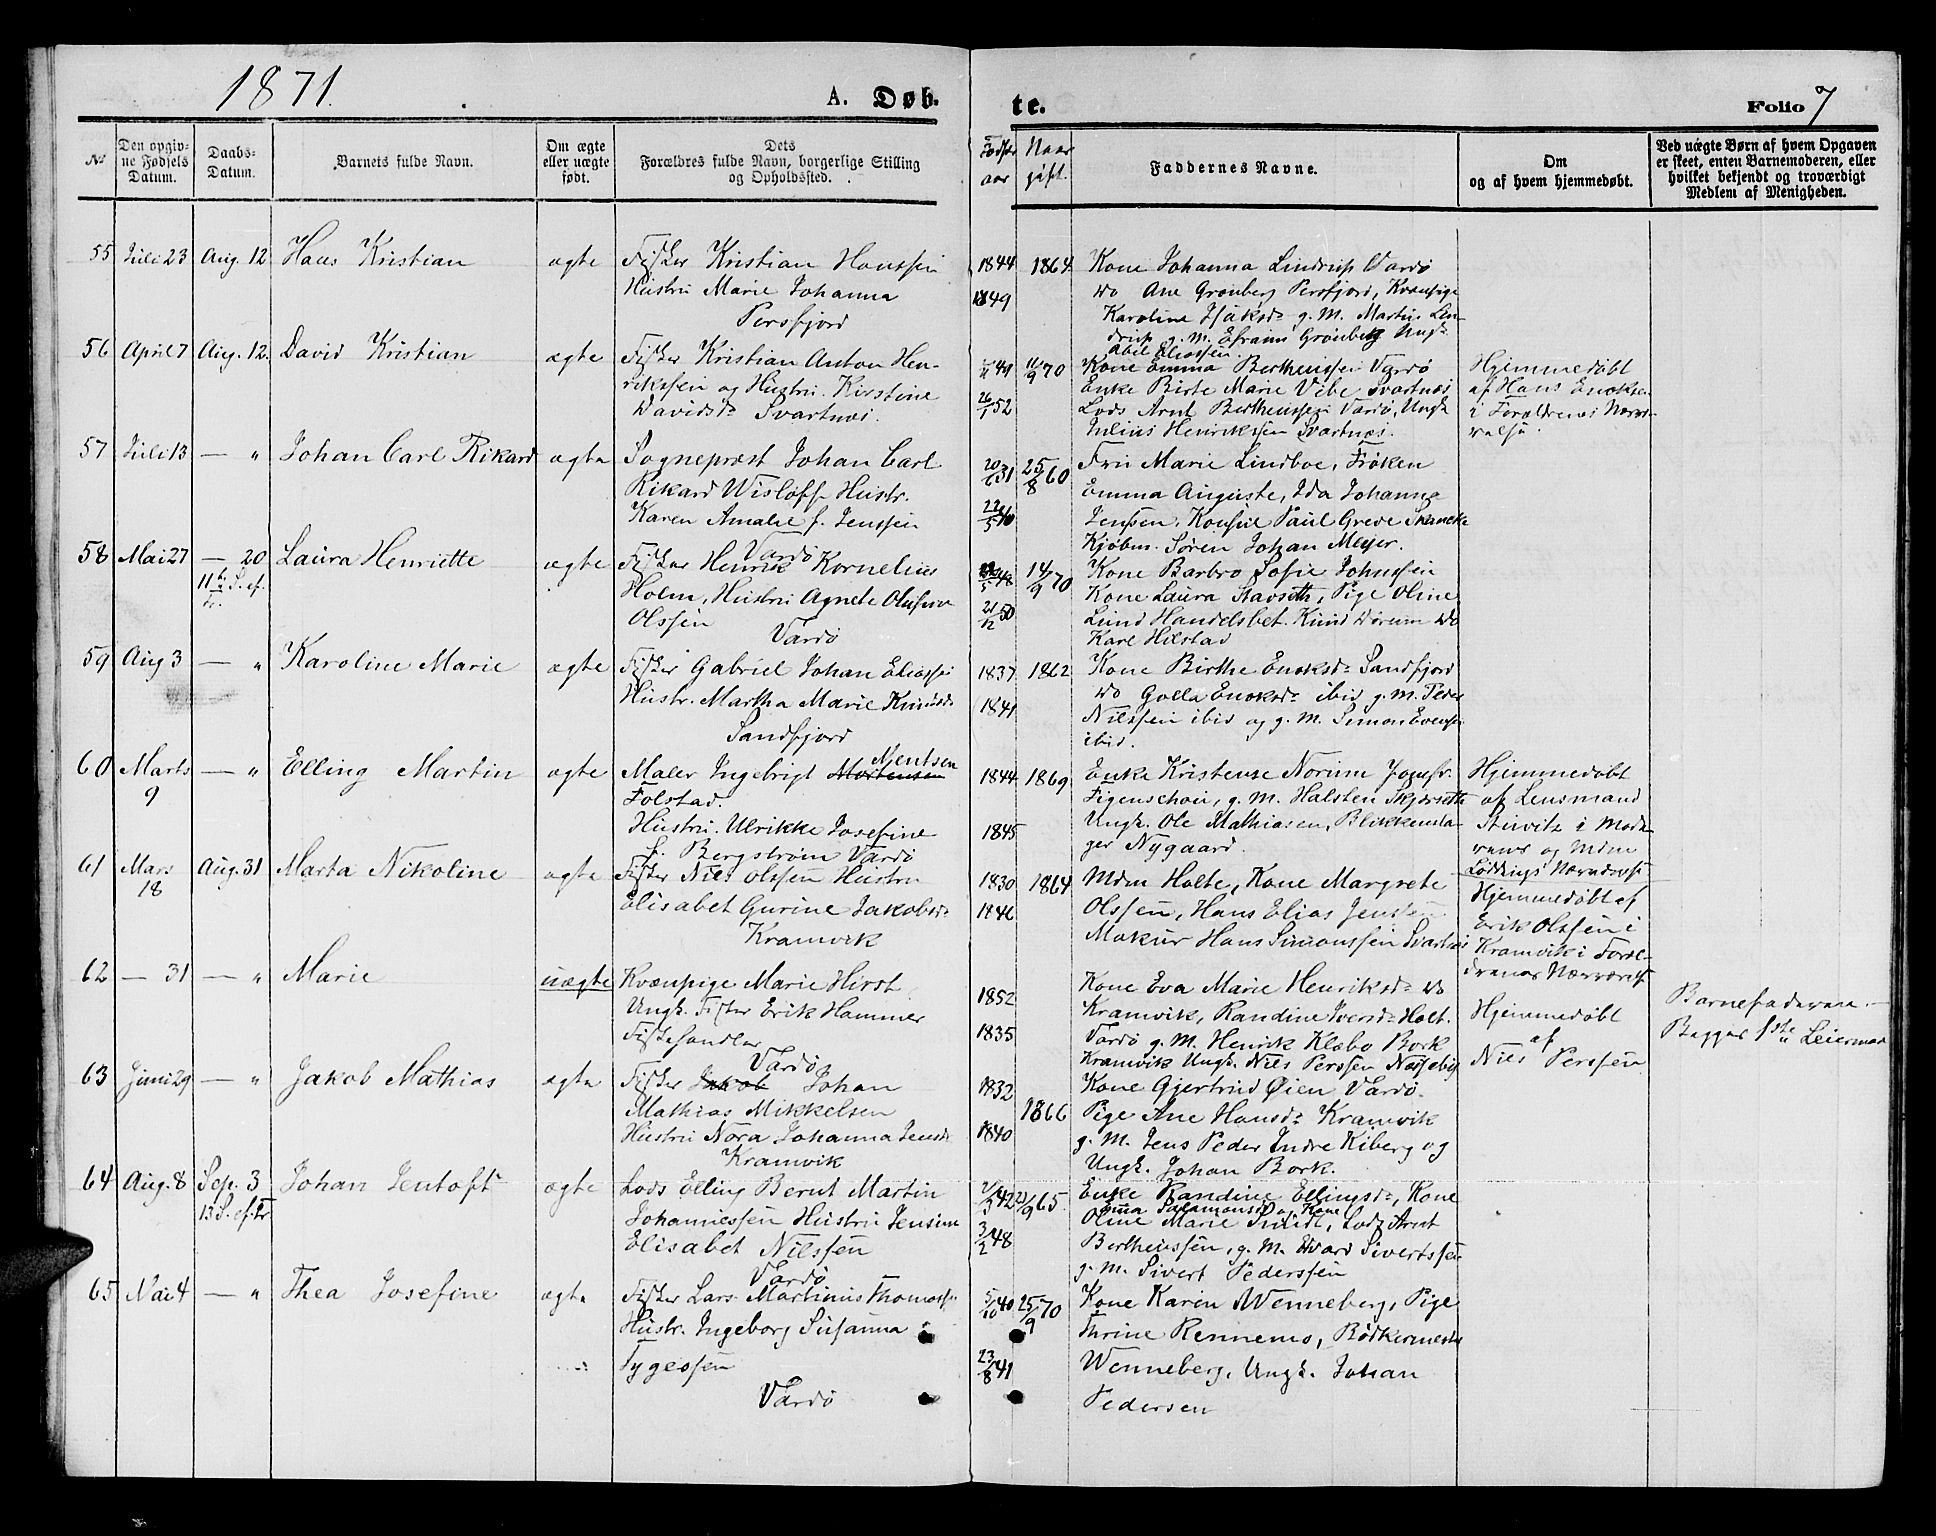 1871.
A. Døb.
te.
Folio 7
№
Den opgiv-
ne Fødsels
Datum.
Daabs-
Datum.
Barnets fulde Navn.
Om ægte
eller uægte
født.
Dets
Forældres fulde Navn, borgerlige Stilling
og Opholdssted.
Fødsels
aar
Naar
gift.
Faddernes Navne.
Om
og af hvem hjemmedøbt.
Ved uægte Børn af hvem Opgaven
er skeet, enten Barnemoderen, eller
hvilket bekjendt og troværdigt
Medlem af Menigheden.
55 Juli 23 Aug. 12 Hans Kristian ægte Fisker Kristian Hanssen 1844 1864 Kone Johanna Lindrup Vardø
Hustru Marie Johanna 1849 do Ane Grønberg Persfjord, Kvænpige
Persfjord Karoline Isaksd. g. M. Martin Lin-
drup g. M. Efraim Grønberg Ungk.
Abel Eliassen.
56 April 7 Aug. 12. David Kristian ægte Fisker Kristian Anton Hen- 49 11/9 70 Kone Emma Berthenssen Vardø Hjemmedøbt
rikssen og Hustru Kirstine 26/1 52 Enke Birte Marie Vibe Svartnæs af Hans Enoksen
Davidsd. Svartnæs. Lods Arnt Berthenssen Vardø, Ungk. i Forældrenes Nærvæ-
Julius Henrikssen Svartnæs. relse.
57 Juli 13 — " Johan Carl Rikard ægte Sognepræst Johan Carl 20/6 31 25/8 60 Fru Marie Lindboe, Frøken
Rikard Wisløff Hustr. Emma Auguste, Ida Johanna
Karen Amalie f. Jenssen 22/5 40 Jenssen, Konsul Paul Greve Skancke
Vardø Kjøbm. Søren Johan Meyer.
58 Mai 27 — 20 Laura Henriette ægte Fisker Henrik Kornelius 48 14/9 70 Kone Barbro Sofie Johnssen
11te S. ef. Holm, Hustru Agnete Olufine Kone Laura Stavseth, Pige Oline
Tr. Olssen 21/12 50 Lund Handelsbet. Knud Wirum do
Vardø Karl Hilstad
59 Aug 3 — " Karoline Marie ægte Fisker Gabriel Johan Eliassen 1837 1862 Kone Birthe Enoksd. Sandfjord
Hustr. Martha Marie Knudsd. 1841 do Golla Enoksd. ibid g. M. Peder
Sandfjord Nilssen ibid og g. M. Simon Evensen
ibid.
60 Marts — " Elling Martin ægte Maler Ingebrigt Mortensen Mentsen 1844 1869 Enke Kristense Norum Jomfr. Hjemmedøbt
9 Folstad. Figenschou, g. M. Halsten Skjørseth af Lensmand
Hustru. Ulrikke Josefine 1845 Ungk. Ole Mathiasen, Blikkensla- Stirvitz i Mode-
f. Bergstrøm Vardø ger Nygaard. rens og Mdm
Løddings Nærværelse
61 Mars Aug. 31 Marta Nikoline ægte Fisker Nils Olssen Hustru 1830 1864 Mdm Holte, Kone Margrete Hjemmedøbt af
18 Elisabet Gurine Jakobsd. 1846 Olssen, Hans Elias Jenssen Erik Olssen i
Kramvik Makur Hans Simonssen Svartnæs Kramvik i Foræl-
drenes Nærværelse
62 — 31 — " Marie uægte Kvænpige Marie Hirst 1852 Kone Eva Marie Henriksd. do Hjemmedøbt Barnefaderens
Ungk. Fisker Erik Hammer 1835 Kramvik, Randine Iversd. Holt. af Begges 1ste Leiermaal
Fiskehandler Vardø g. M. Henrik Klæbo Bork Nils Perssen
Vardø Kramvik Ungk. Nils Perssen Næsseby
63 Juni 29 — " Jakob Mathias ægte Fisker Jakob Johan 1832 1866 Kone Gjertrud Øien Vardø.
Mathias Mikkelsen Pige Ane Hansd. Kramvik
Hustru Nora Johanna Jensd. 1840 g. M. Jens Peder Indre Kiberg og
Kramvik Ungk. Johan Bork.
64 Aug. 8 Sep. 3 Johan Jentoft ægte Lods Elling Bernt Martin 2/3 42 21/9 65. Enke Randine Ellingsd., Kone
13 S. ef. Tr Johannessen Hustru Jensine Emma Salamonsd. og Kone
Elisabet Nilssen 3/2 48 Oline Marie Smidt, Lods Arnt
Vardø Berthenssen, g. M. Edvard Sivertssen
g. M. Sivert Pederssen
65 Mai 4 — " Thea Josefine ægte Fisker Lars Martinus Thomassen 5/10 40 25/9 70 Kone Karen Wenneberg, Pige
Hustr. Ingeborg Susanna Thrine Rennemo, Bødkermester
Tygessen 23/8 41 Wenneberg, Ungk. Johan
Vardø Pedersen